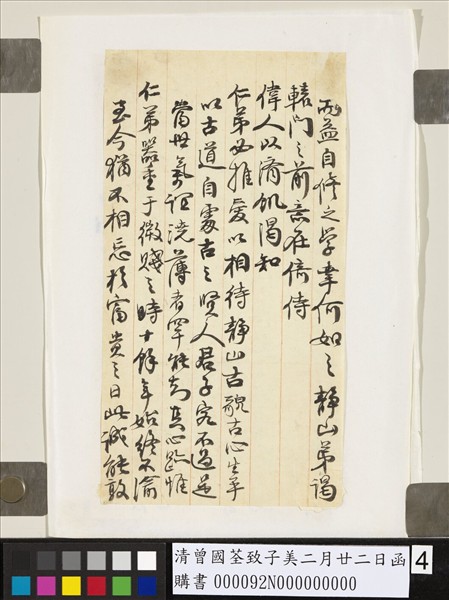 而益自修之学幸何如之靜山弟謁
轅門之前意在倚侍
偉人以濟飢渴知
仁弟必推愛以相待靜山古貌古心生平
以古道自處古之賢人君子宛不過是
當世氣誼澆薄者罕能知其心跡惟
仁弟器重于微賤之時十餘年始終不渝
至今猶不相忘於富貴之日此誠能敦
清曾國荃致子美二月廿二日函
4
購書 000092N000000000